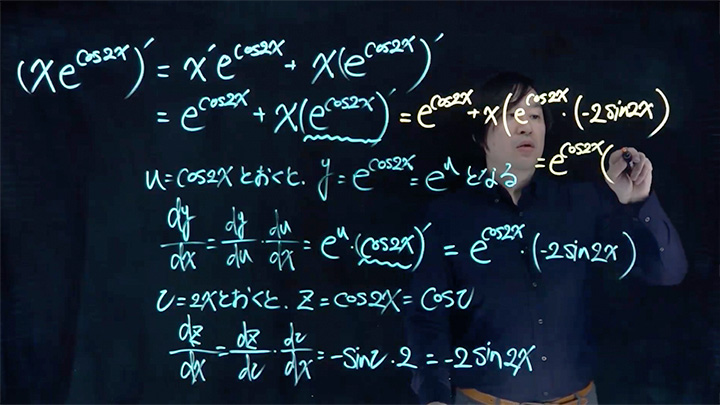 (xe^{cos2x})′ = x′e^{cos2x} + x(e^{cos2x})′
= e^{cos2x} + x(e^{cos2x})′ = e^{cos2x} + x(e^{cos2x}・(-2sin2x)
= e^{cos2x}(
u=cos2xとおくと. y=e^{cos2x}=e^uとなる
dy/dx = dy/du・du/dx = e^u・(cos2x)′ = e^{cos2x}・(-2sin2x)
v=2xとおくと. z=cos2x=cosv
dz/dx = dz/dv・dv/dx = -sinv・2 = -2sin2x